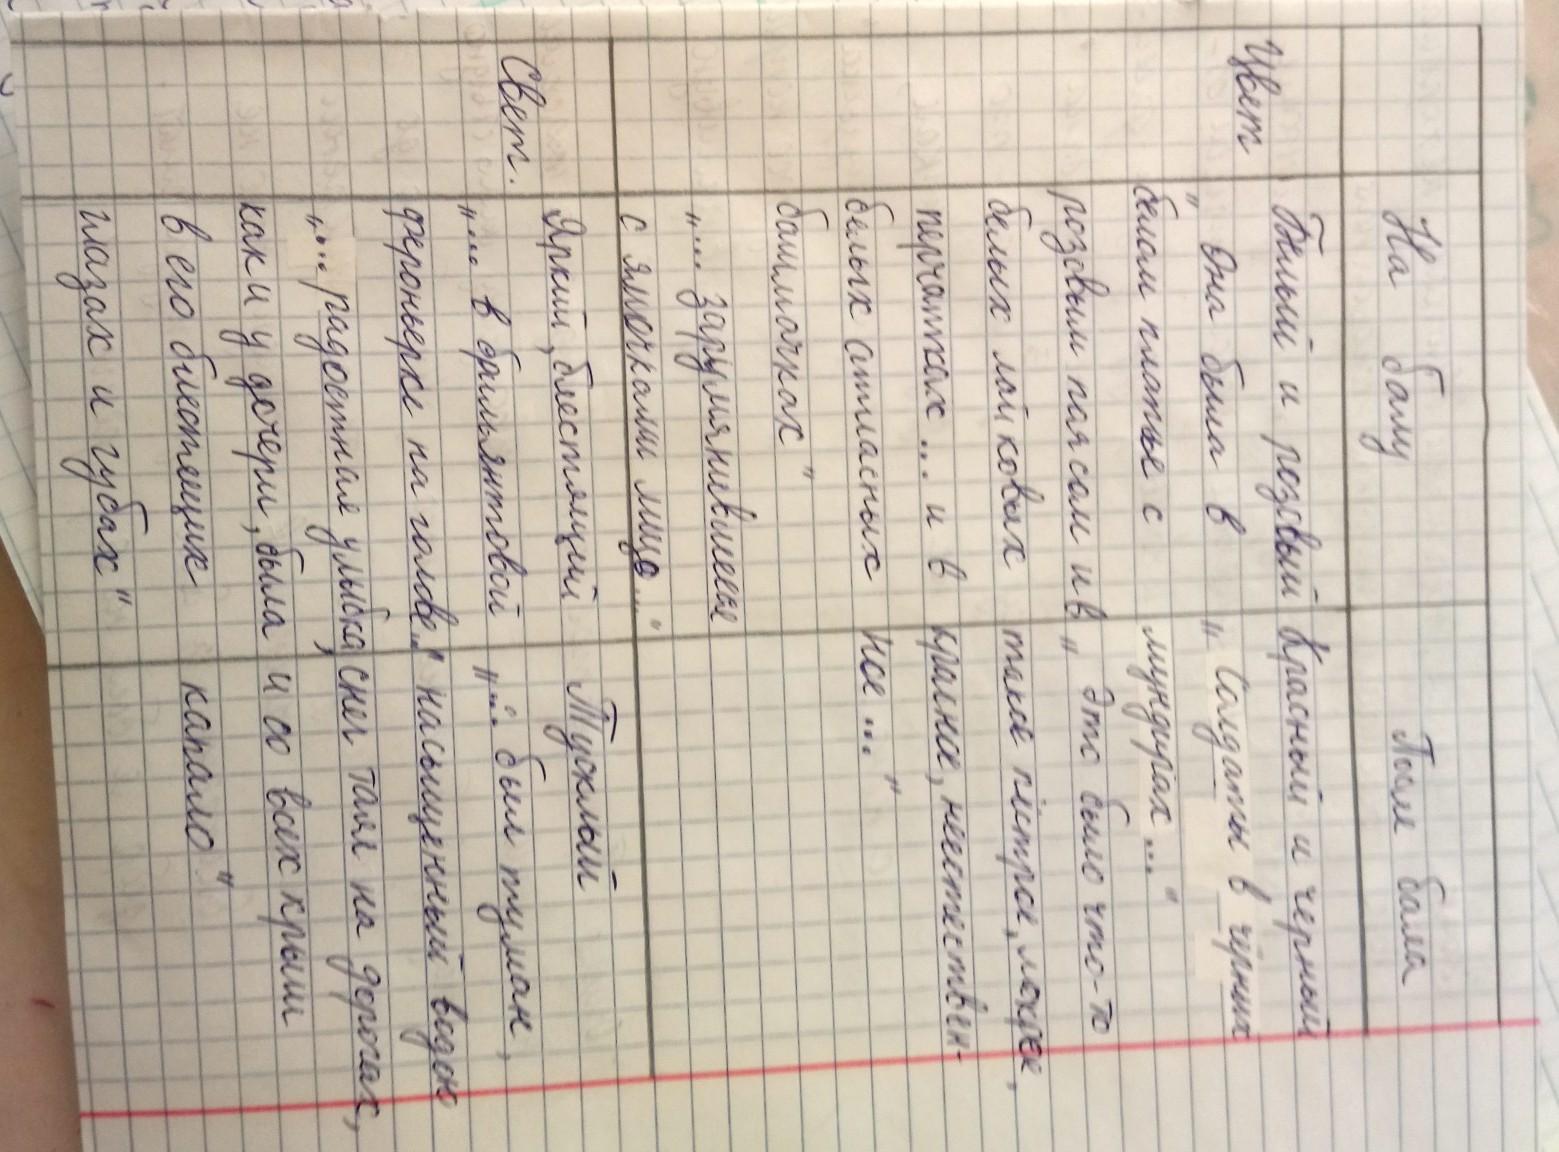 На балу
После бала
Цвет
Белый и розовый
„ Она была в
белом платье с
розовым поясом и в
белых лайковых
перчатках... и в
белых атласных
башмачках"
„... зарумянившееся
с ямочками лицо..."
Красный и черный
„ Солдаты в чёрных
мундирах..."
„ Это было что-то
такое пёстрое, мокрое,
красное, неестествен-
ное..."
Свет.
Яркий, блестящий
„... в брильянтовой
фероньерке на голове"
„... радостная улыбка,
как и у дочери, была
в его блестящих
глазах и губах"
Тусклый
„... был туман,
насыщенный водою
снег таял на дорогах,
и со всех крыш
капало"